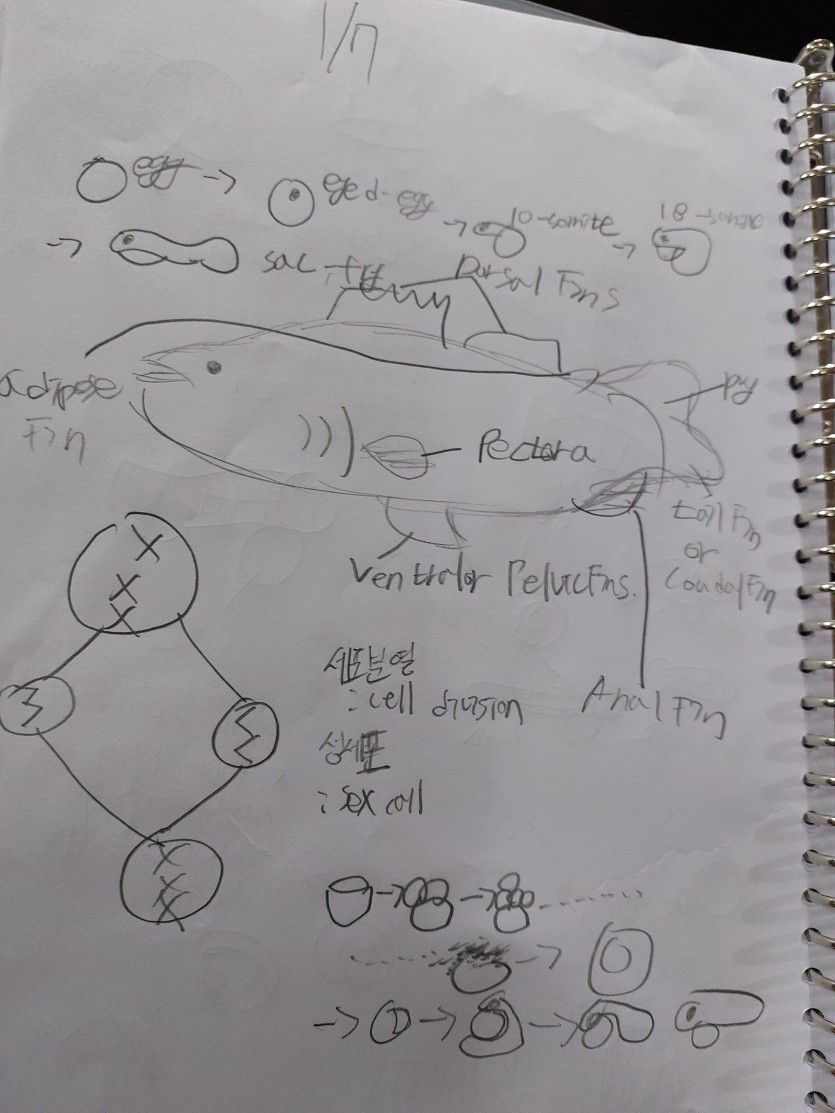 1/7
egg → eyed-egg → 10-somite → 18-somite
→ sac-fry
Dorsal Fins
adipose
Fin
Pectora
tail Fin
or
Coudal Fin
Ventral or Pelvic Fins.
Anal Fin
세포분열
: cell division
성세포
: sex cell